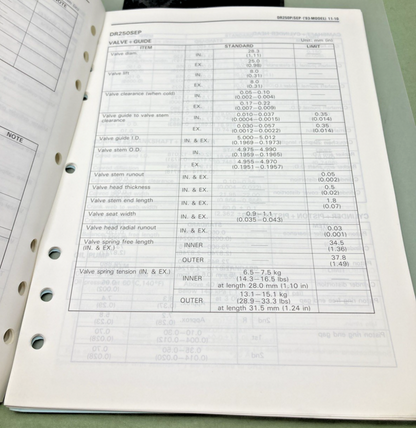 NOTE
NOTE
DR250SEP
VALVE + GUIDE
ITEM STANDARD LIMIT
Valve diam. IN. 28.3 (1.11)
EX. 25.0 (0.98)
Valve lift IN. 8.0 (0.31)
EX. 8.0 (0.31)
Valve clearance (when cold) IN. 0.05–0.10 (0.002–0.004)
EX. 0.17–0.22 (0.007–0.009)
Valve guide to valve stem clearance IN. 0.010–0.037 (0.0004–0.0015) 0.35 (0.014)
EX. 0.030–0.057 (0.0012–0.0022) 0.35 (0.014)
Valve guide I.D. IN. & EX. 5.000–5.012 (0.1969–0.1973)
Valve stem O.D. IN. 4.975–4.990 (0.1959–0.1965)
EX. 4.955–4.970 (0.1951–0.1957)
Valve stem runout IN. & EX. 0.05 (0.002)
Valve head thickness IN. & EX. 0.5 (0.02)
Valve stem end length IN. & EX. 1.8 (0.07)
Valve seat width IN. & EX. 0.9–1.1 (0.035–0.043)
Valve head radial runout IN. & EX. 0.03 (0.001)
Valve spring free length (IN. & EX.) INNER 34.5 (1.36)
OUTER 37.8 (1.49)
Valve spring tension (IN. & EX.) INNER 6.5–7.5 kg
(14.3–16.5 lbs)
at length 28.0 mm (1.10 in)
OUTER 13.1–15.1 kg
(28.9–33.3 lbs)
at length 31.5 mm (1.24 in)